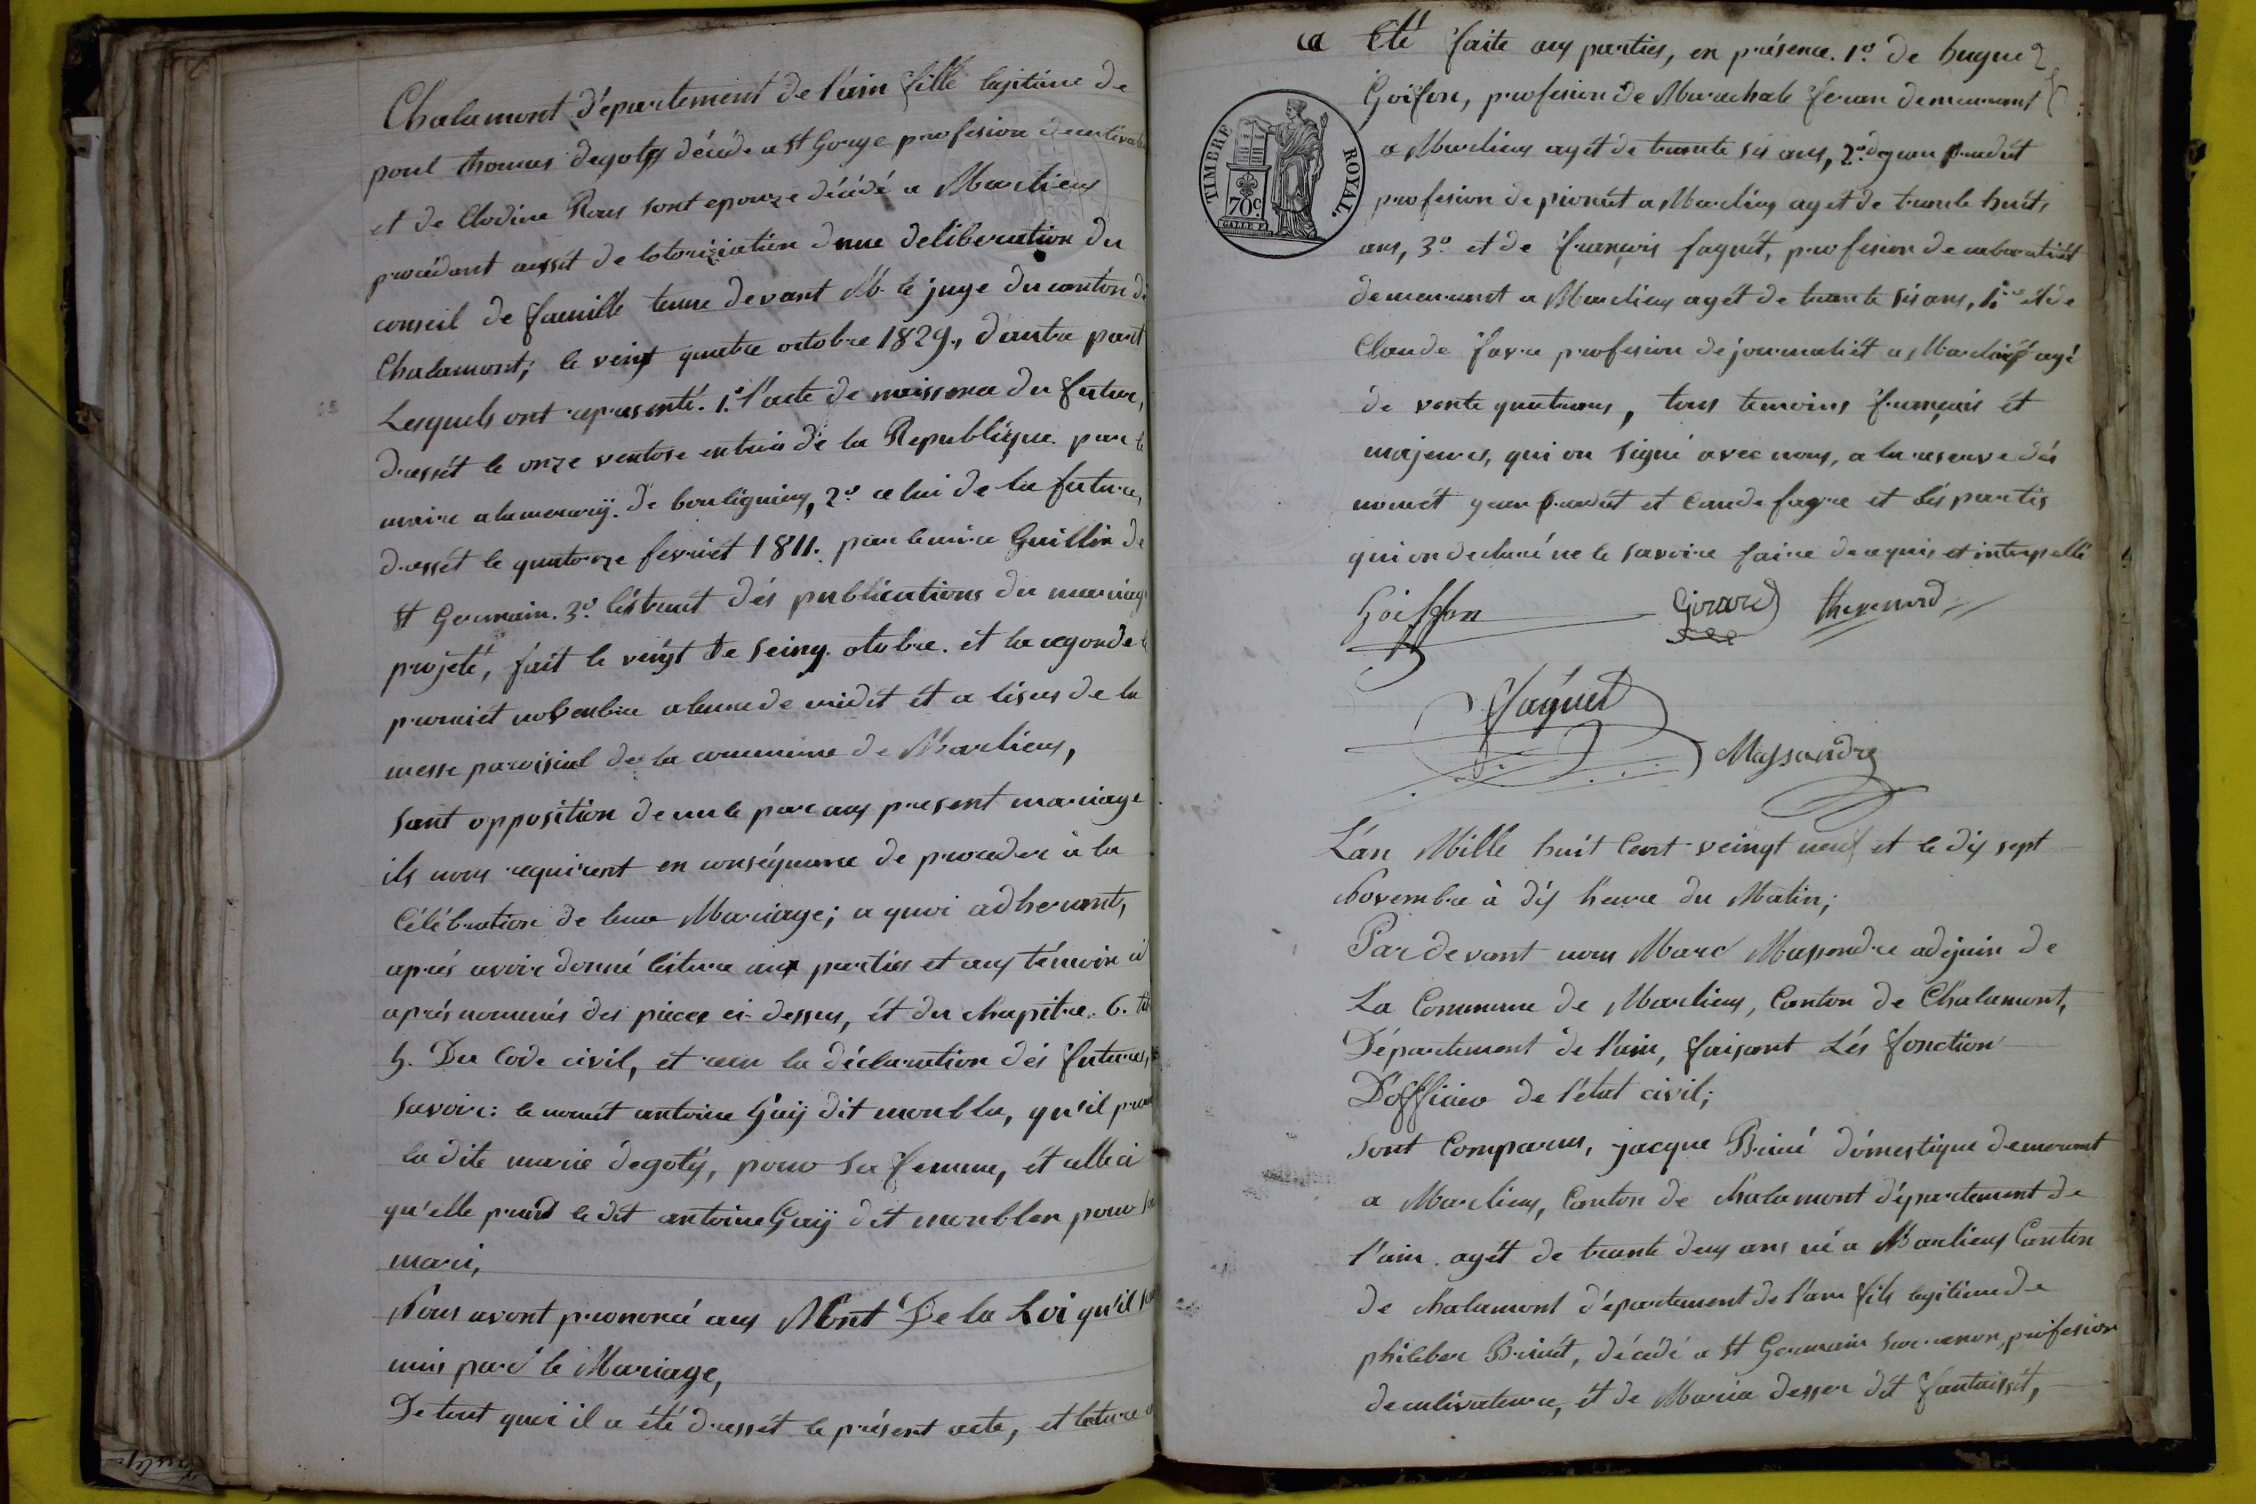 Chalamont d'épartement de l'ain fille lagitime de
poul thomas degoty décéde a St Gorge profesion de
et de Clodine Rous sont epouze décédé a Marlieux
procédant aussit de lotoriziation dune deliberation du
conseil de famille tenue devant M. le juge du canton de
Chalamont; le veingt quatre octobre 1829, d'autre part
Lesquels ont représenté. 1.º l'acte de naissance du futur,
dressét le onze ventose de la Republique par le
maire de bouligneux, 2.º celui de la future,
dressét le quatorze fevriét 1811. par Guillin de
St Germain. 3.º léxtrait dés publications du mariage
projeté, fait le veingt otobre. et la cegonde le
premiét novembre a heure de midit ét a lisus de la
messe paroisial de la commune de Marlieux,
sant opposition de nule par aux present mariage
ils nous requirent en conséquance de proceder à la
Célébration de leure Mariage; a quoi adherant,
aprés avoir donné lecture aux parties et aux témoin ci
aprés nommés des pieces ci-dessus, ét du chapitre. 6. tit
5. Du Code civil, et recu la déclaration dés futures,
savoir: le nomét antoine Gaÿ dit monbla, qu'il prend
la dite marie degoty, pour sa femme, ét celle ci
qu'elle prend le dit antoine Gaÿ dit monblan pour son
mari,
Nous avont prononcé aux Nont De la Loi qu'il sont
unis par le Mariage,
De tout quoi il a été dressét le présent acte, et lecture
a Eté faite aux parties, en présence. 1.º de hugue
Goifon, profesion de Marechale féran demeurant
a Marlieux agét de trante sis ans, 2.º
profesion de a Marlieux agét de trante huét,
ans, 3.º et de françois faguét, profesion de cabaratiét
demeurant a Marlieux agét de trante sis ans, ét de
Claude favre profesion de journaliét a Marlieux agé
de vente quatrans, tous temoins français ét
majeures, qui on signé avec nous, a la reserve dés
nomét et Caude favre et lés partis
qui on declaré ne le savoire faire de ce quis et intrepellé
Goiffon Girard thevenard
Faguet
Massandre
L'án Mille huit Cent veingt neuf et le dix sept
Novembre à dix heure du Matin;
Par devant nous Marc Massondre adejoin de
La Commune de Marlieux, Canton de Chalamont,
Département de l'ain, faisant Lés fonction
D'officiere de l'état civil;
sont Comparus, jacque Brivé dómestique demeurant
a Marlieux, Canton de chalamont département de
l'ain. agét de trante deux ans né a Marlieux Canton
de chalamont d'epartement de l'ain fils legitime de
phileber Brivét, décédé a St Germain sur renon, profesion
de cultivateure, ét de Maria desser dit fantaissét,
TIMBRE ROYAL.
70c